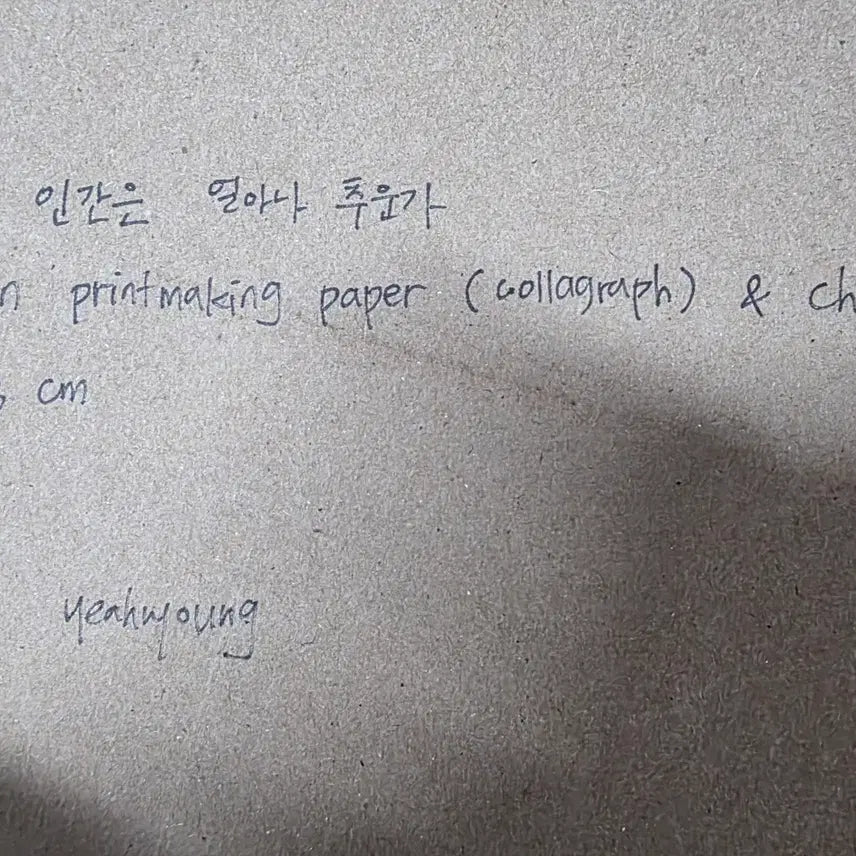 인간은 얼마나 추운가
n printmaking paper (collagraph) & ch
cm